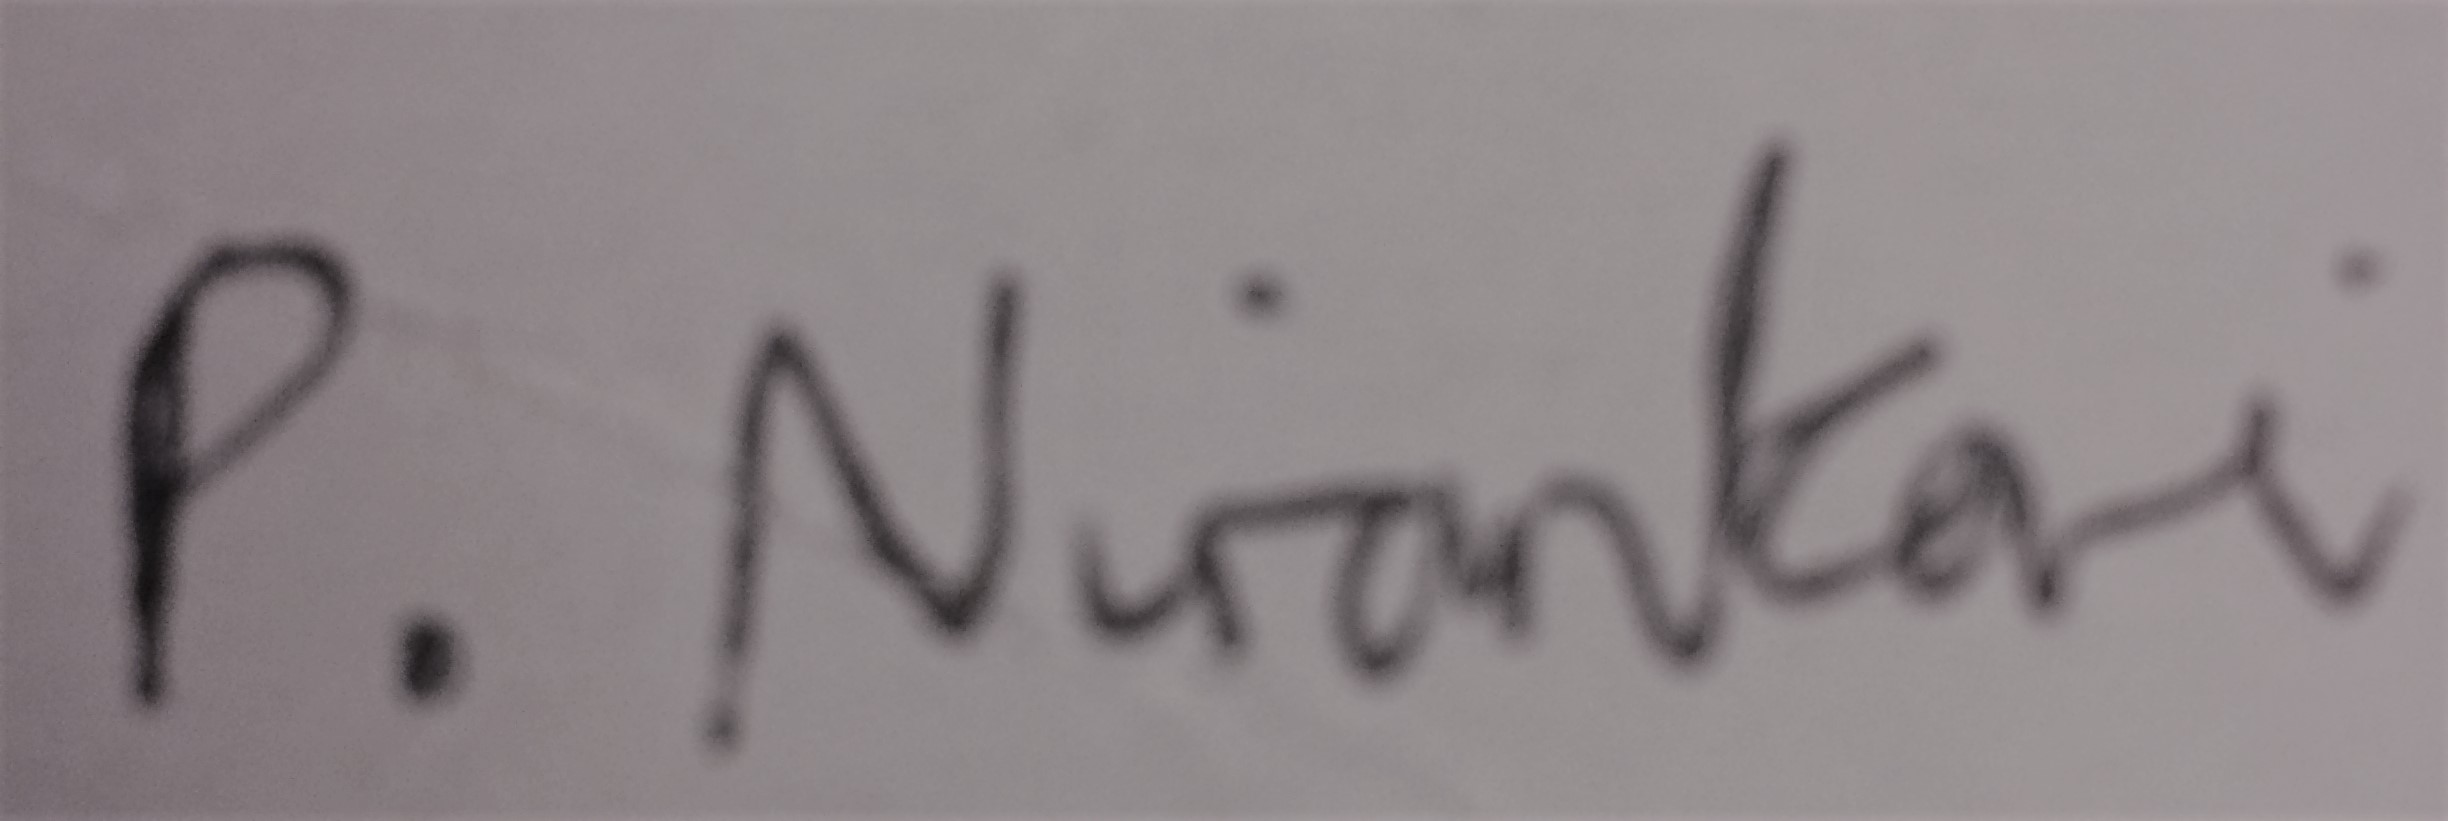 P. Nirankari